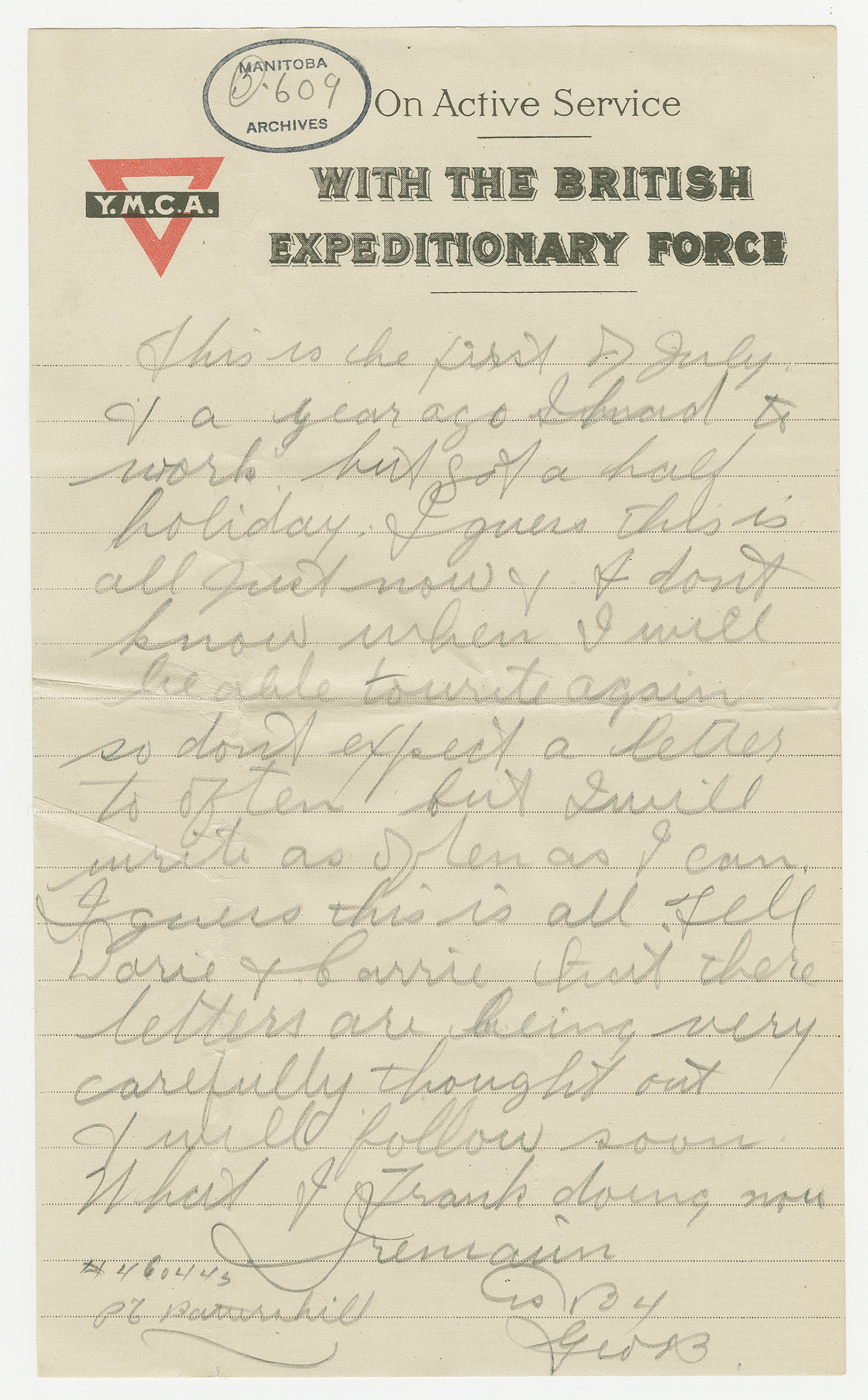 MANITOBA
P.609
ARCHIVES
On Active Service
Y.M.C.A.
WITH THE BRITISH
EXPEDITIONARY FORCE
This is the first of July.
& a year ago I had to
work but got a half
holiday. I guess this is
all just now & I dont
know when I will
be able to write again
so dont expect a letter
to often but I will
write as often as I can.
I guess this is all. Tell
Dorie & Carrie that there
letters are being very
carefully thought out
& will follow soon.
What is Frank doing now
I remain
# 460443
Pt Battershill
Geo B